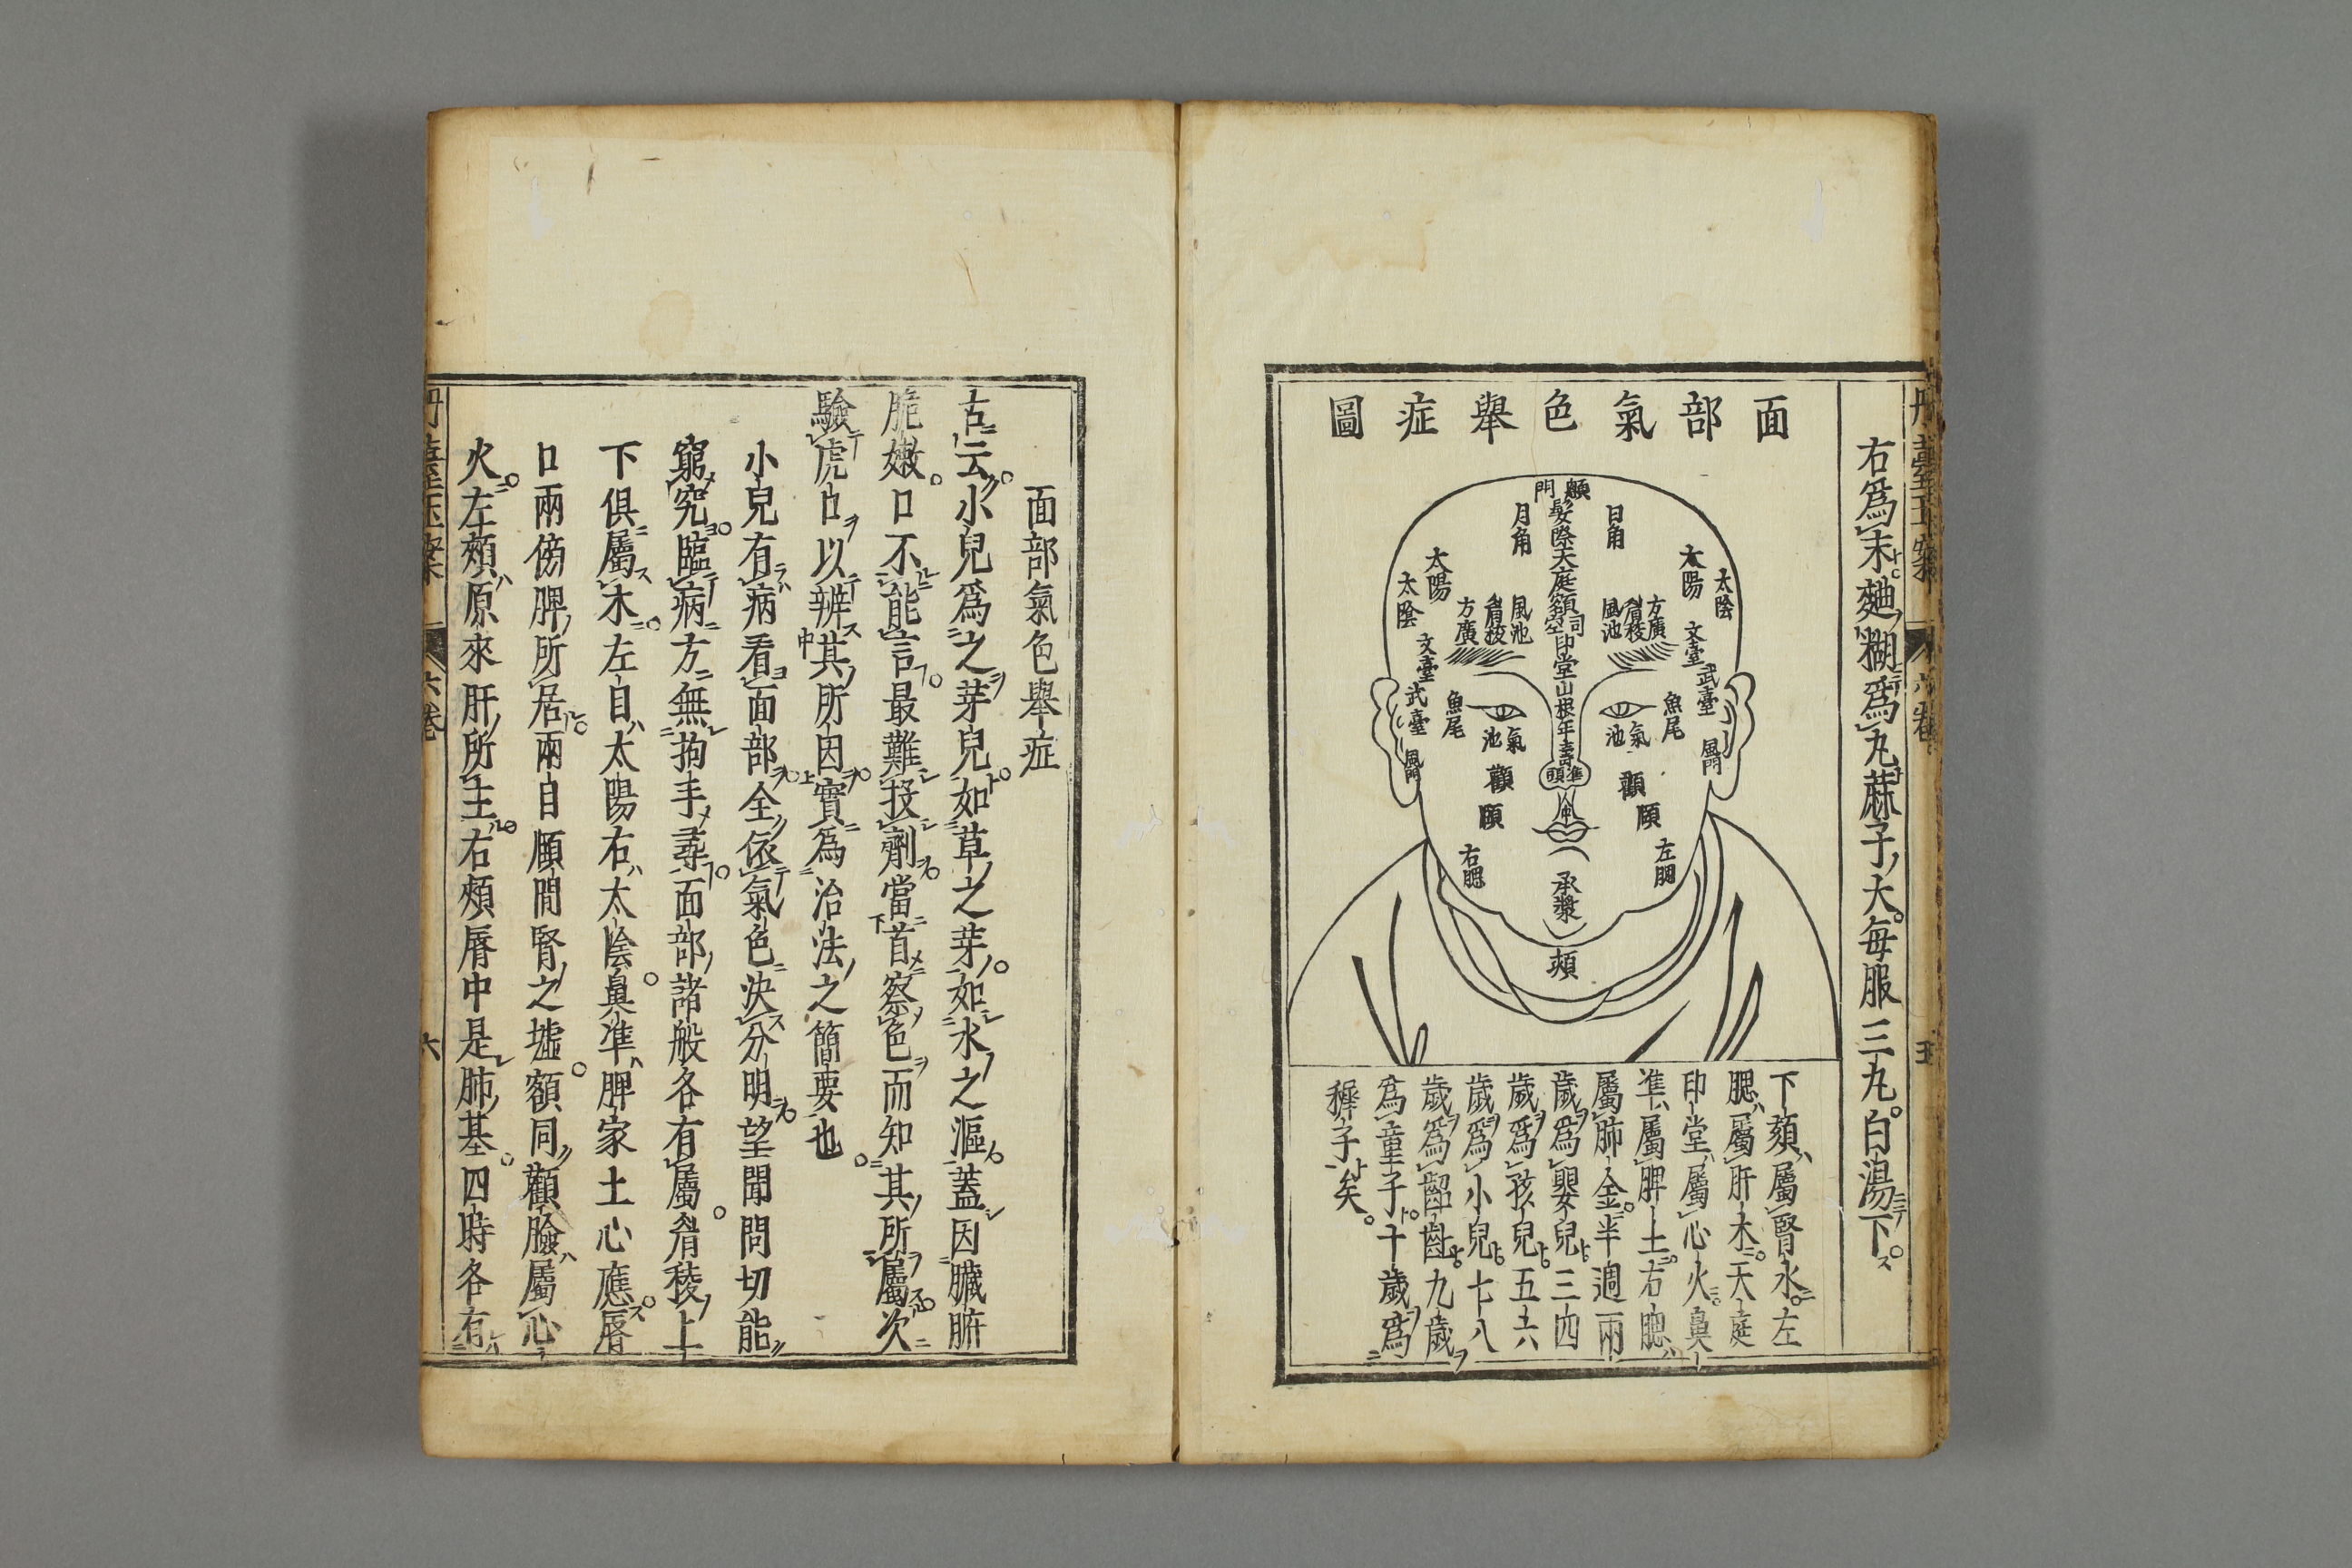 右爲末麯糊爲丸蔴子大每服三九白湯下
面部氣色舉症圖
顖門
髮際天庭額司空印堂山根年壽準頭
日角
月角
太陽
太陰
太陽
太陰
方廣
眉稜
風池
風池
眉稜
方廣
文臺
武臺
文臺
武臺
魚尾
魚尾
氣池
氣池
風門
風門
顴
顴
頤
頤
左腮
右腮
承漿
頰
下頦屬腎水左
腮屬肝木天庭
印堂屬心火鼻
準屬脾土右腮
屬肺金半週兩
歲爲嬰兒三四
歲爲孩兒五六
歲爲小兒七八
歲爲齠齔九歲
爲童子十歲爲
穉子矣
面部氣色舉症
古云小兒爲之芽兒如草之芽如水之漚蓋因臟腑
脆嫩口不能言最難投劑當首察色而知其所屬次
驗虎口以辨其所因實爲治法之簡要也
小兒有病看面部全依氣色決分明望聞問切能
窮究臨病方無拘手尋面部諸般各有屬眉稜上
下俱屬木左自太陽右太陰鼻準脾家土心應唇
口兩傍脾所居兩目頤間腎之墟額同顴臉屬心
火左頰原來肝所主右頰唇中是肺基四時各有
六卷
六